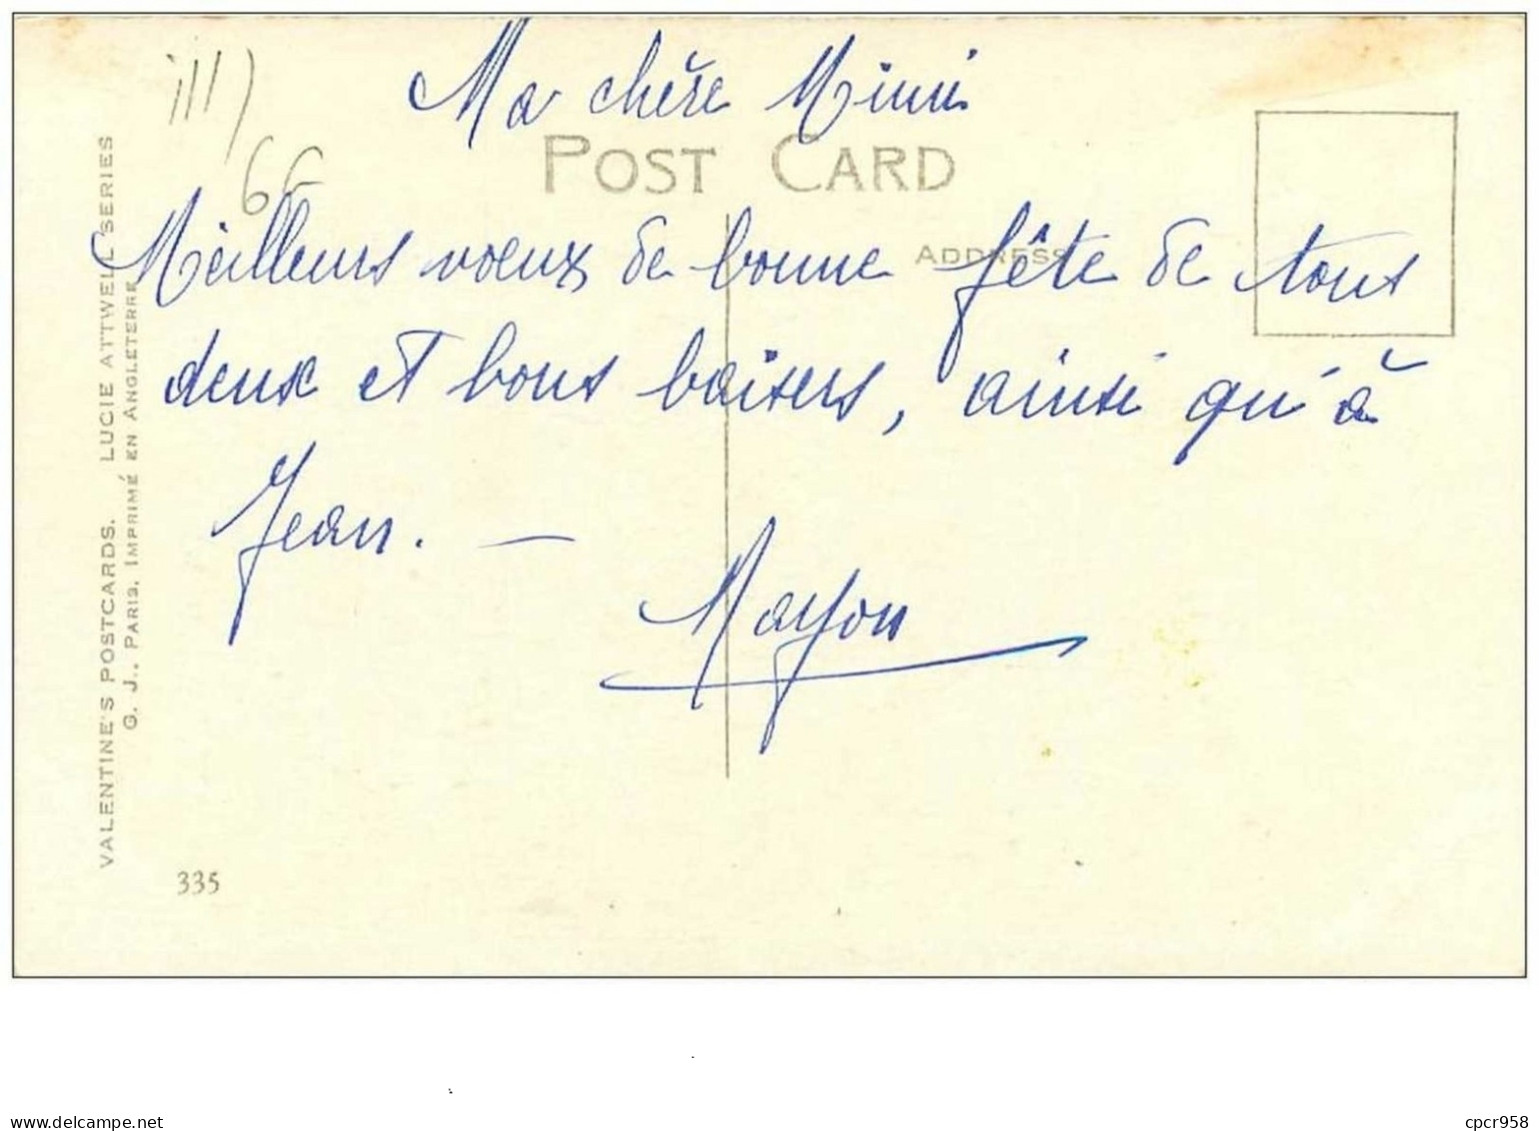 Ma chère Mimi
POST CARD
Meilleurs voeux de bonne fête de tous
ADDRESS
deux et bons baisers, ainsi qu'à
Jean. —
VALENTINE'S POSTCARDS. LUCIE ATTWELL SERIES
G. J., PARIS. IMPRIMÉ EN ANGLETERRE
66
335
delcampe.net
cpcr958